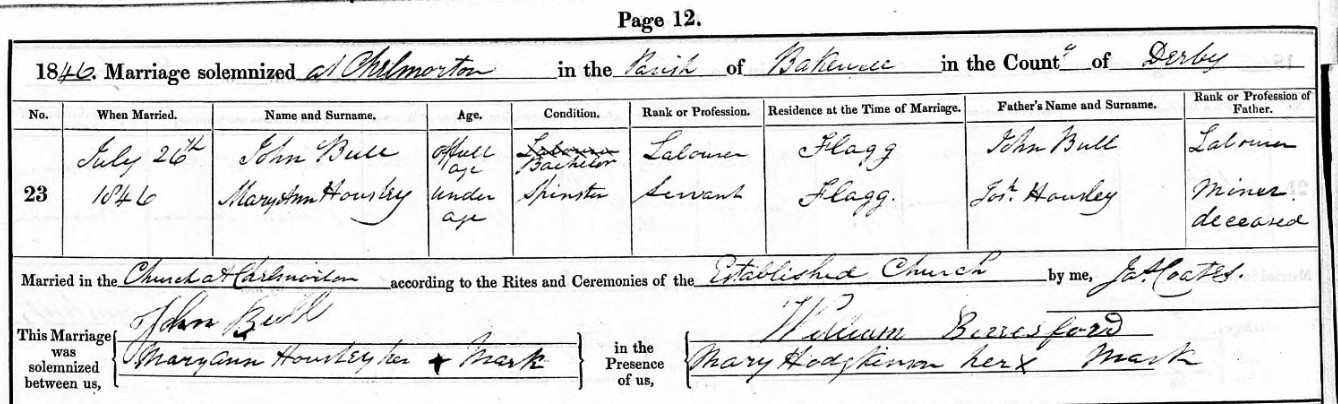 Page 12.
1846. Marriage solemnized at Chelmorton in the Parish of Bakewell in the County of Derby
No. When Married. Name and Surname. Age. Condition. Rank or Profession. Residence at the Time of Marriage. Father's Name and Surname. Rank or Profession of Father.
July 26th John Bull of full age Labourer Bachelor Labourer Flagg John Bull Labourer
23 1846 Mary Ann Housley under age Spinster Servant Flagg. Josh. Housley Miner deceased
Married in the Church at Chelmorton according to the Rites and Ceremonies of the Established Church by me, Jas. Coates.
This Marriage was solemnized between us,
John Bull
Mary Ann Housley her + Mark
in the Presence of us,
William Berresford
Mary Hodgkinson her x Mark